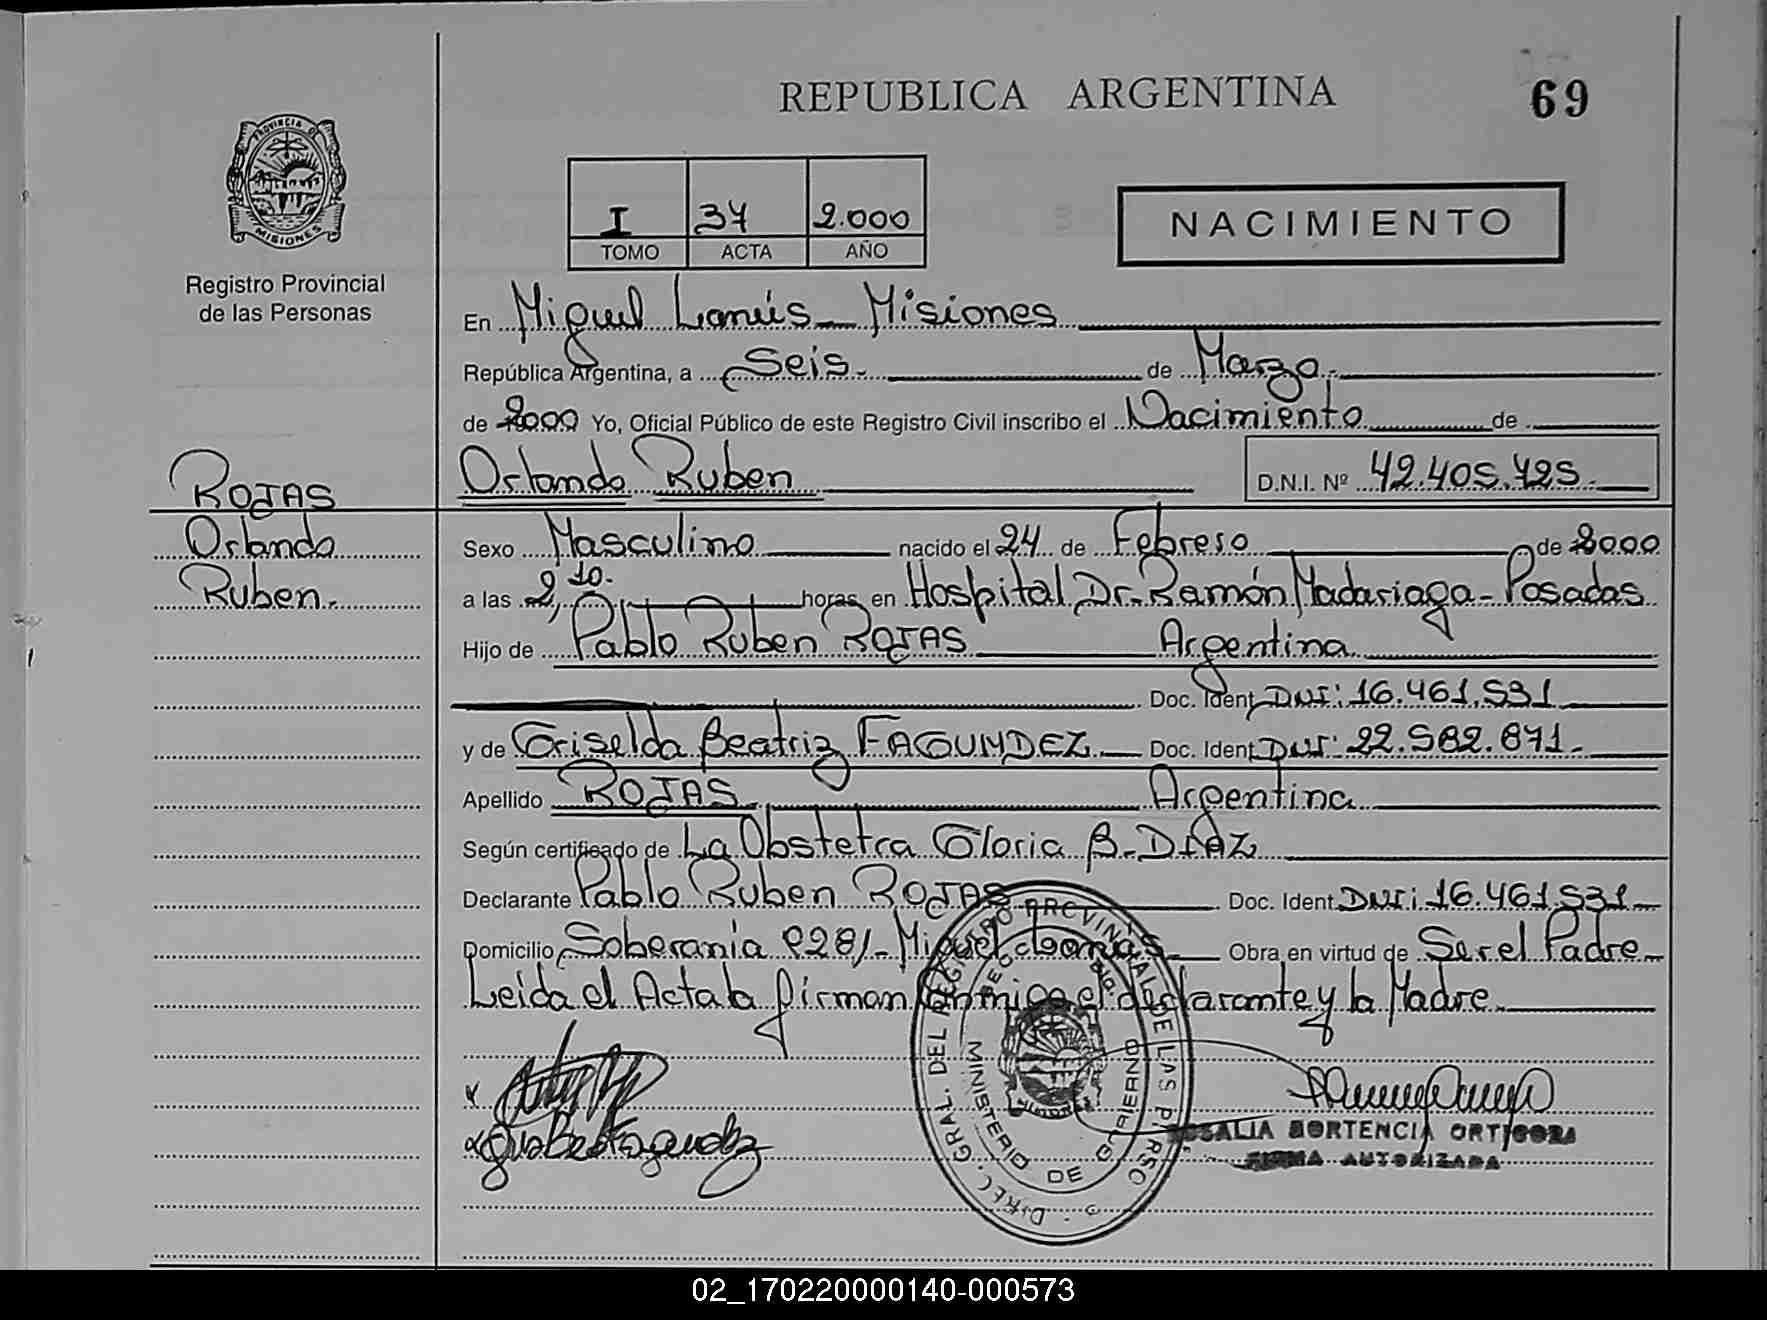 REPUBLICA ARGENTINA
69
PROVINCIA DE
MISIONES
Registro Provincial
de las Personas
I 37 2.000
TOMO ACTA AÑO
NACIMIENTO
En Miguel Lanús - Misiones
República Argentina, a Seis. de Marzo.
de 2000 Yo, Oficial Público de este Registro Civil inscribo el Nacimiento de
Orlando Ruben
D.N.I. Nº 42.405.725.
ROJAS
Orlando
Ruben.
Sexo Masculino nacido el 24 de Febrero de 2000
a las 2,10. horas en Hospital Dr. Ramón Madariaga - Posadas
Hijo de Pablo Ruben ROJAS Argentina
Doc. Ident. DNI: 16.461.531
y de Griselda Beatriz FAGUNDEZ Doc. Ident. DNI: 22.582.871.
Apellido ROJAS Argentina
Según certificado de La Obstetra Gloria B. DIAZ
Declarante Pablo Ruben ROJAS Doc. Ident. DNI: 16.461.531
Domicilio Soberanía 228/- Miguel Lanús Obra en virtud de Ser el Padre
Leída el Acta la firman conmigo el declarante y la Madre.
DIREC. GRAL. DEL REGISTRO PROVINCIAL DE LAS PERSO
MINISTERIO DE GOBIERNO
ROSALIA HORTENCIA ORTIGOZA
FIRMA AUTORIZADA
02_170220000140-000573